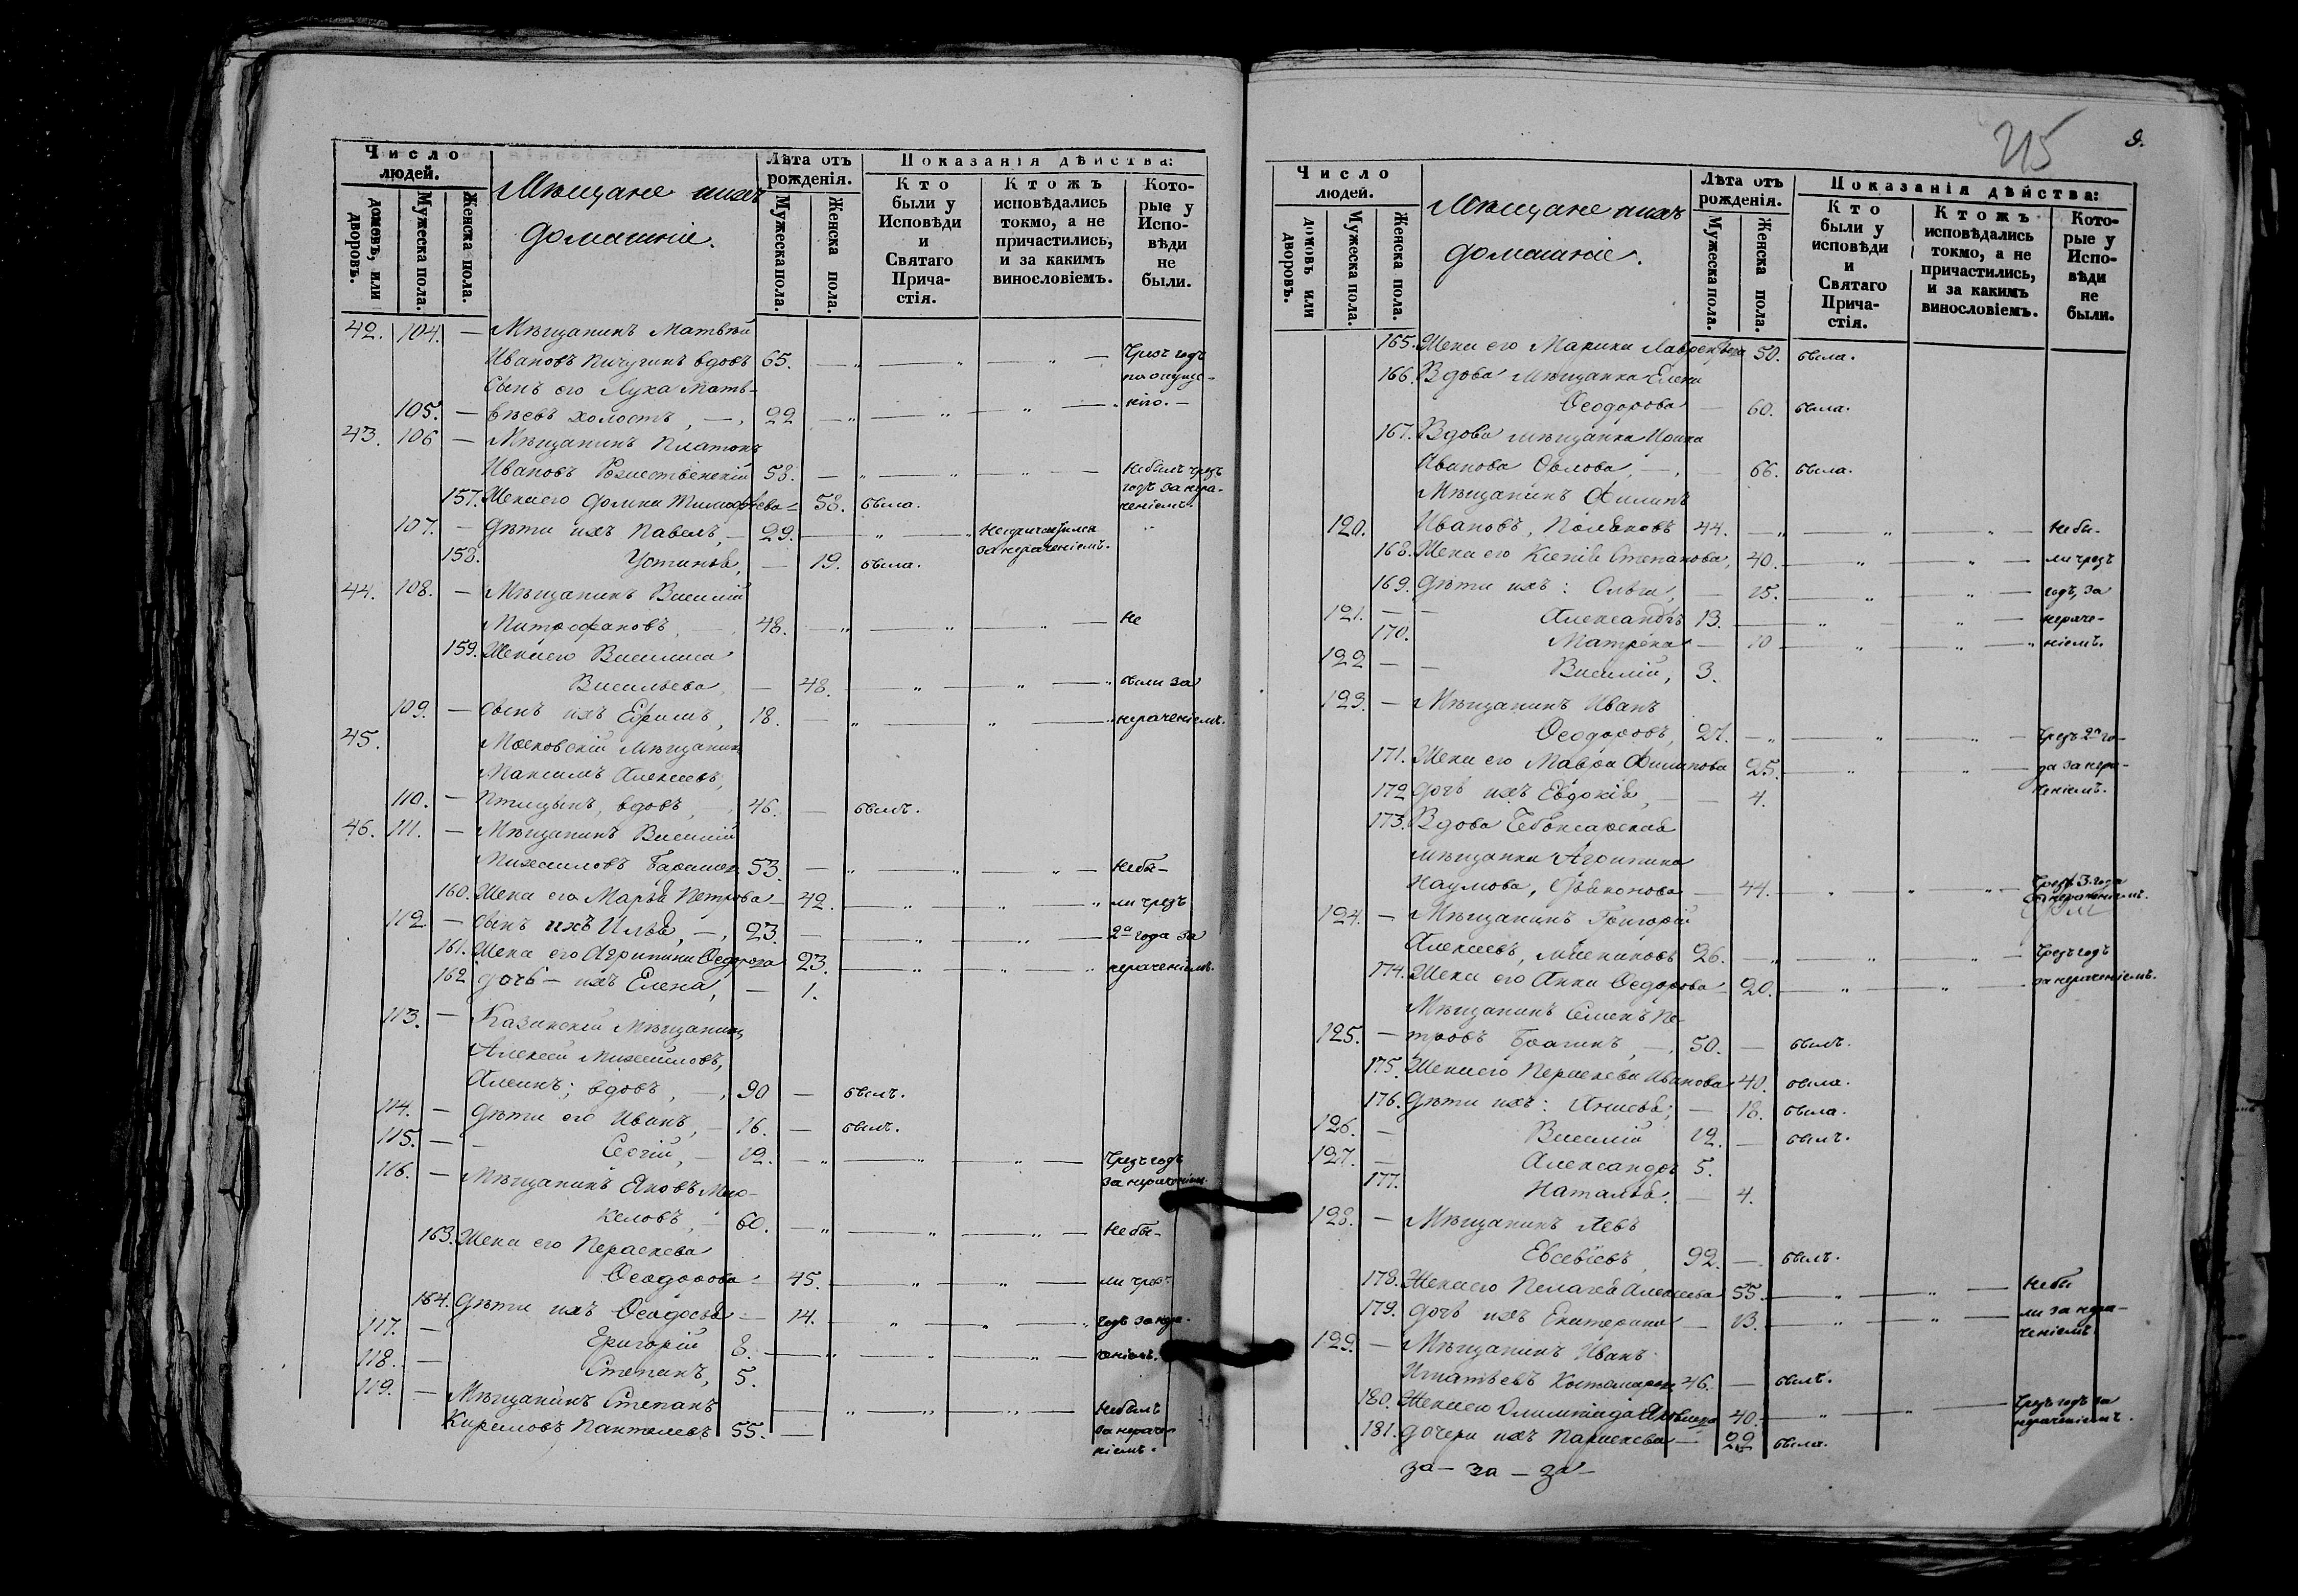 Число людей.
домовъ, или дворовъ.
Мужеска пола.
Женска пола.
Мѣщане и ихъ
домашніе.
Лѣта отъ рожденія.
Мужеска пола.
Женска пола.
Показанія дѣйства:
Кто были у Исповѣди и Святаго Причастія.
Ктожъ исповѣдались токмо, а не причастились, и за какимъ винословіемъ.
Которые у Исповѣди не были.
42. 104. — Мѣщанинъ Матвѣй
Ивановъ Пичугинъ вдовъ 65. — Чрезъ годъ
по опуще-
Сынъ его Лука Матв-
105. — вѣевъ холостъ, — 22 — нію. —
43. 106 — Мѣщанинъ Платонъ
Ивановъ Рождественскій 58. — Не былъ чрезъ
годъ за нера-
157. Жена его Домна Тимофѣева — 58. была. ченіемъ.
107. — Дѣти ихъ Павелъ, — 29. — Не причастился
за нераченіемъ.
158. Устинья, — 19. была.
44. 108. — Мѣщанинъ Василій
Митрофановъ, — 48. — Не
159. Жена его Василиса
Васильева, — 48. — были за
109. — Сынъ ихъ Ефимъ, 18. — нераченіемъ.
45. Московскій мѣщанинъ
Максимъ Алексѣевъ,
110. — Птицынъ, вдовъ, — 46. — былъ.
46. 111. — Мѣщанинъ Василій
Михаиловъ 53. — Не бы-
160. Жена его Марья Петрова — 42. — ли чрезъ
112 — Сынъ ихъ Илья, — 23. — 2а года за
161. Жена его Агрипина Ѳедорова 23. — нераченіемъ.
162 дочь — ихъ Елена, — 1.
113. — Казанскій мѣщанинъ
Алексѣй Михаиловъ,
вдовъ, — 90 — былъ.
114. — Дѣти его Иванъ, — 16. — былъ.
115. — Сергій, — 12. — Чрезъ годъ
за нераченіем.
116. — Мѣщанинъ Яковъ Мар-
келовъ, — 60. — Не бы-
163. Жена его Параскева
Ѳеодорова — 45. — ли чрезъ
164. Дѣти ихъ Ѳеодосья — 14. — годъ за нера-
117. — Григорій 8. — ченіемъ.
118. — Степанъ, 5.
119. — Мѣщанинъ Степанъ — Не былъ
Кириловъ Пантелеевъ 55. — за нераче-
ніемъ.
215
9.
Число людей.
домовъ или дворовъ.
Мужеска пола.
Женска пола.
Мѣщане и ихъ
домашніе.
Лѣта отъ рожденія.
Мужеска пола.
Женска пола.
Показанія дѣйства:
Кто были у исповѣди и Святаго Причастія.
Ктожъ исповѣдались токмо, а не причастились, и за какимъ винословіемъ.
Которые у Исповѣди не были.
165. Жена его Марина Лаврентьева 50. была.
166. Вдова мѣщанка Елена
Ѳеодорова — 60. была.
167. Вдова мѣщанка Ирина
Иванова Орлова, — 66. была.
Мѣщанинъ Филипъ
120. Ивановъ, Поляковъ 44. — Не бы-
168. Жена его Ксенія Степанова, 40. — ли чрезъ
169. Дѣти ихъ: Ольга, — 15. — годъ, за
121. — Александръ 13. — нераче-
170. Матрена — 10 — ніемъ.
122 — Василій, 3.
123. — Мѣщанинъ Иванъ
Ѳеодоровъ, 27. — Чрезъ 2а го-
171. Жена его Мавра Филипова 25. — да за нера-
172 дочь ихъ Евдокія, — 4. ченіемъ.
173. Вдова Чебоксарская
мѣщанка Агрипина
Наумова, Дьяконова — 44. — Чрезъ 3 года
за нераченіемъ.
124. — Мѣщанинъ Григорій
Алексѣевъ, Мясниковъ 26. — Чрезъ годъ
174. Жена его Анна Ѳедорова — 20. — за нераченіемъ.
Мѣщанинъ Семенъ Пе-
125. — тровъ Брагинъ, — 50. — былъ.
175. Жена его Параскева Иванова 40. была.
176. Дѣти ихъ: Анисья; — 18. была.
126. — Василій 12. — былъ.
127. — Александръ 5.
177. Наталья. — 4.
128. — Мѣщанинъ Левъ
Евсевіевъ, 92. — былъ.
178. Жена его Пелагея Алексѣева 55. — Не бы
179. дочь ихъ Екатерина — 13. — ли за нера-
ченіемъ
129. — Мѣщанинъ Иванъ
Игнатьевъ 46. — былъ.
180. Жена его Олимпіада Яковлева 40. — Чрезъ годъ за
нераченіемъ.
181. дочери ихъ Параскева — 22 была.
за — за — за —